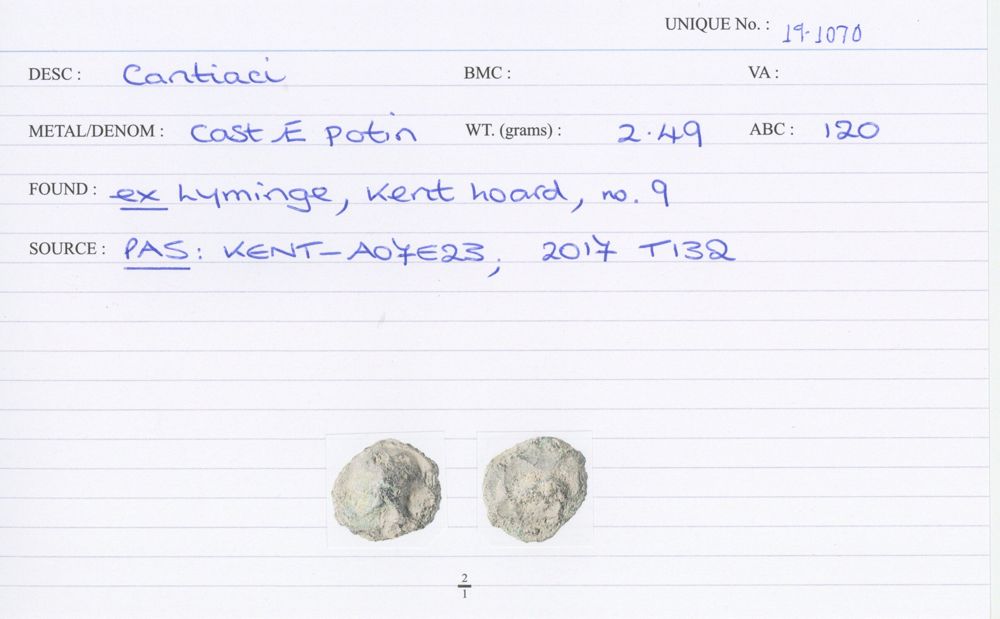 UNIQUE No. : 19-1070
DESC : Cantiaci BMC : VA :
METAL/DENOM : Cast Æ Potin WT. (grams) : 2.49 ABC : 120
FOUND : ex Lyminge, Kent hoard, no. 9
SOURCE : PAS: KENT-A07E23, 2017 T132
2
1